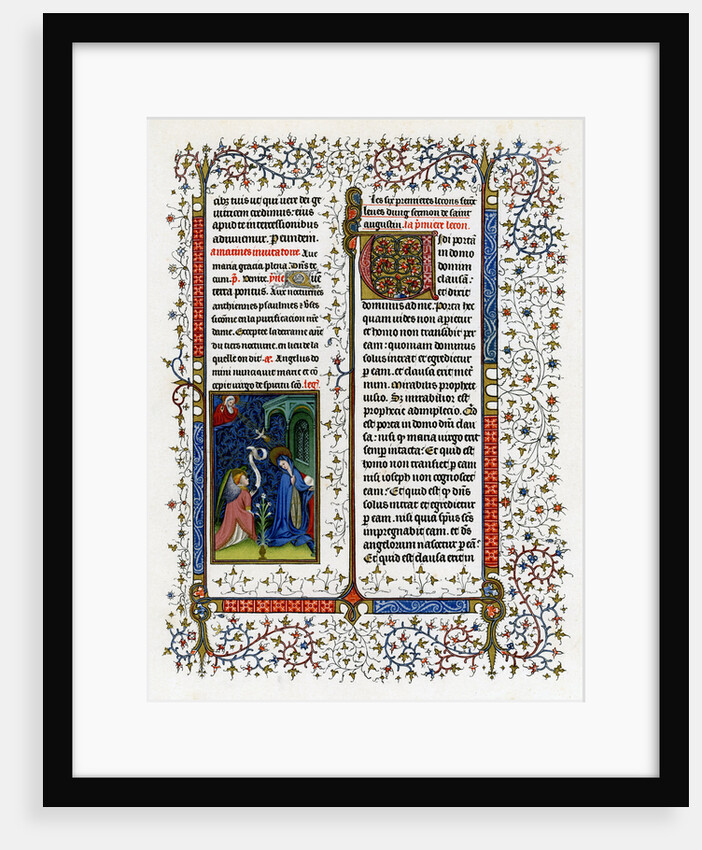 abꝫ tuis ut qui uere dei ge
nitricem credimus: eius
apud te intercessionibus
adiuuemur. Per eundem.
a matines inuitatoire. Aue
maria gracia plena dñs te
cum. p̃. Venite. Que
terra pontus. Aux nocturnes
anthiennes psaulmes et
sicõme en la purification nr̃e
dame. Excepte la derraine añt
du tiers nocturne. en lieu de la
quelle on dit. Angelus do
mini nunciauit marie et cõ
cepit uirgo de spiritu sc̃o.
Les six premieres lecons sont
leues dung sermon de saint
augustin. la p̃miere lecon.
Uidi portã
in domo
domini
clausã:
et dixit
dominus ad me. Porta hec
quam uides non aperietur
et homo non transibit per
eam: quoniam dominus
solus intrat et egredietur
per eam. et clausa erit in eter
num. Mirabilis prophete
uisio. Sꝫ mirabilior est
prophecie adimplecio. Qd̃
est porta in domo dñi clau
sa: nisi qꝫ maria uirgo erit
semper intacta: Et quid est
homo non transiet per eam
nisi ioseph non cognoscet
eam: Et quid est qꝫ dñs
solus intrat et egredietur
per eam. nisi quia sp̃us sc̃s
impregnabit eam. et dñs
angelorum nascetur per eã:
Et quid est clausa erit in